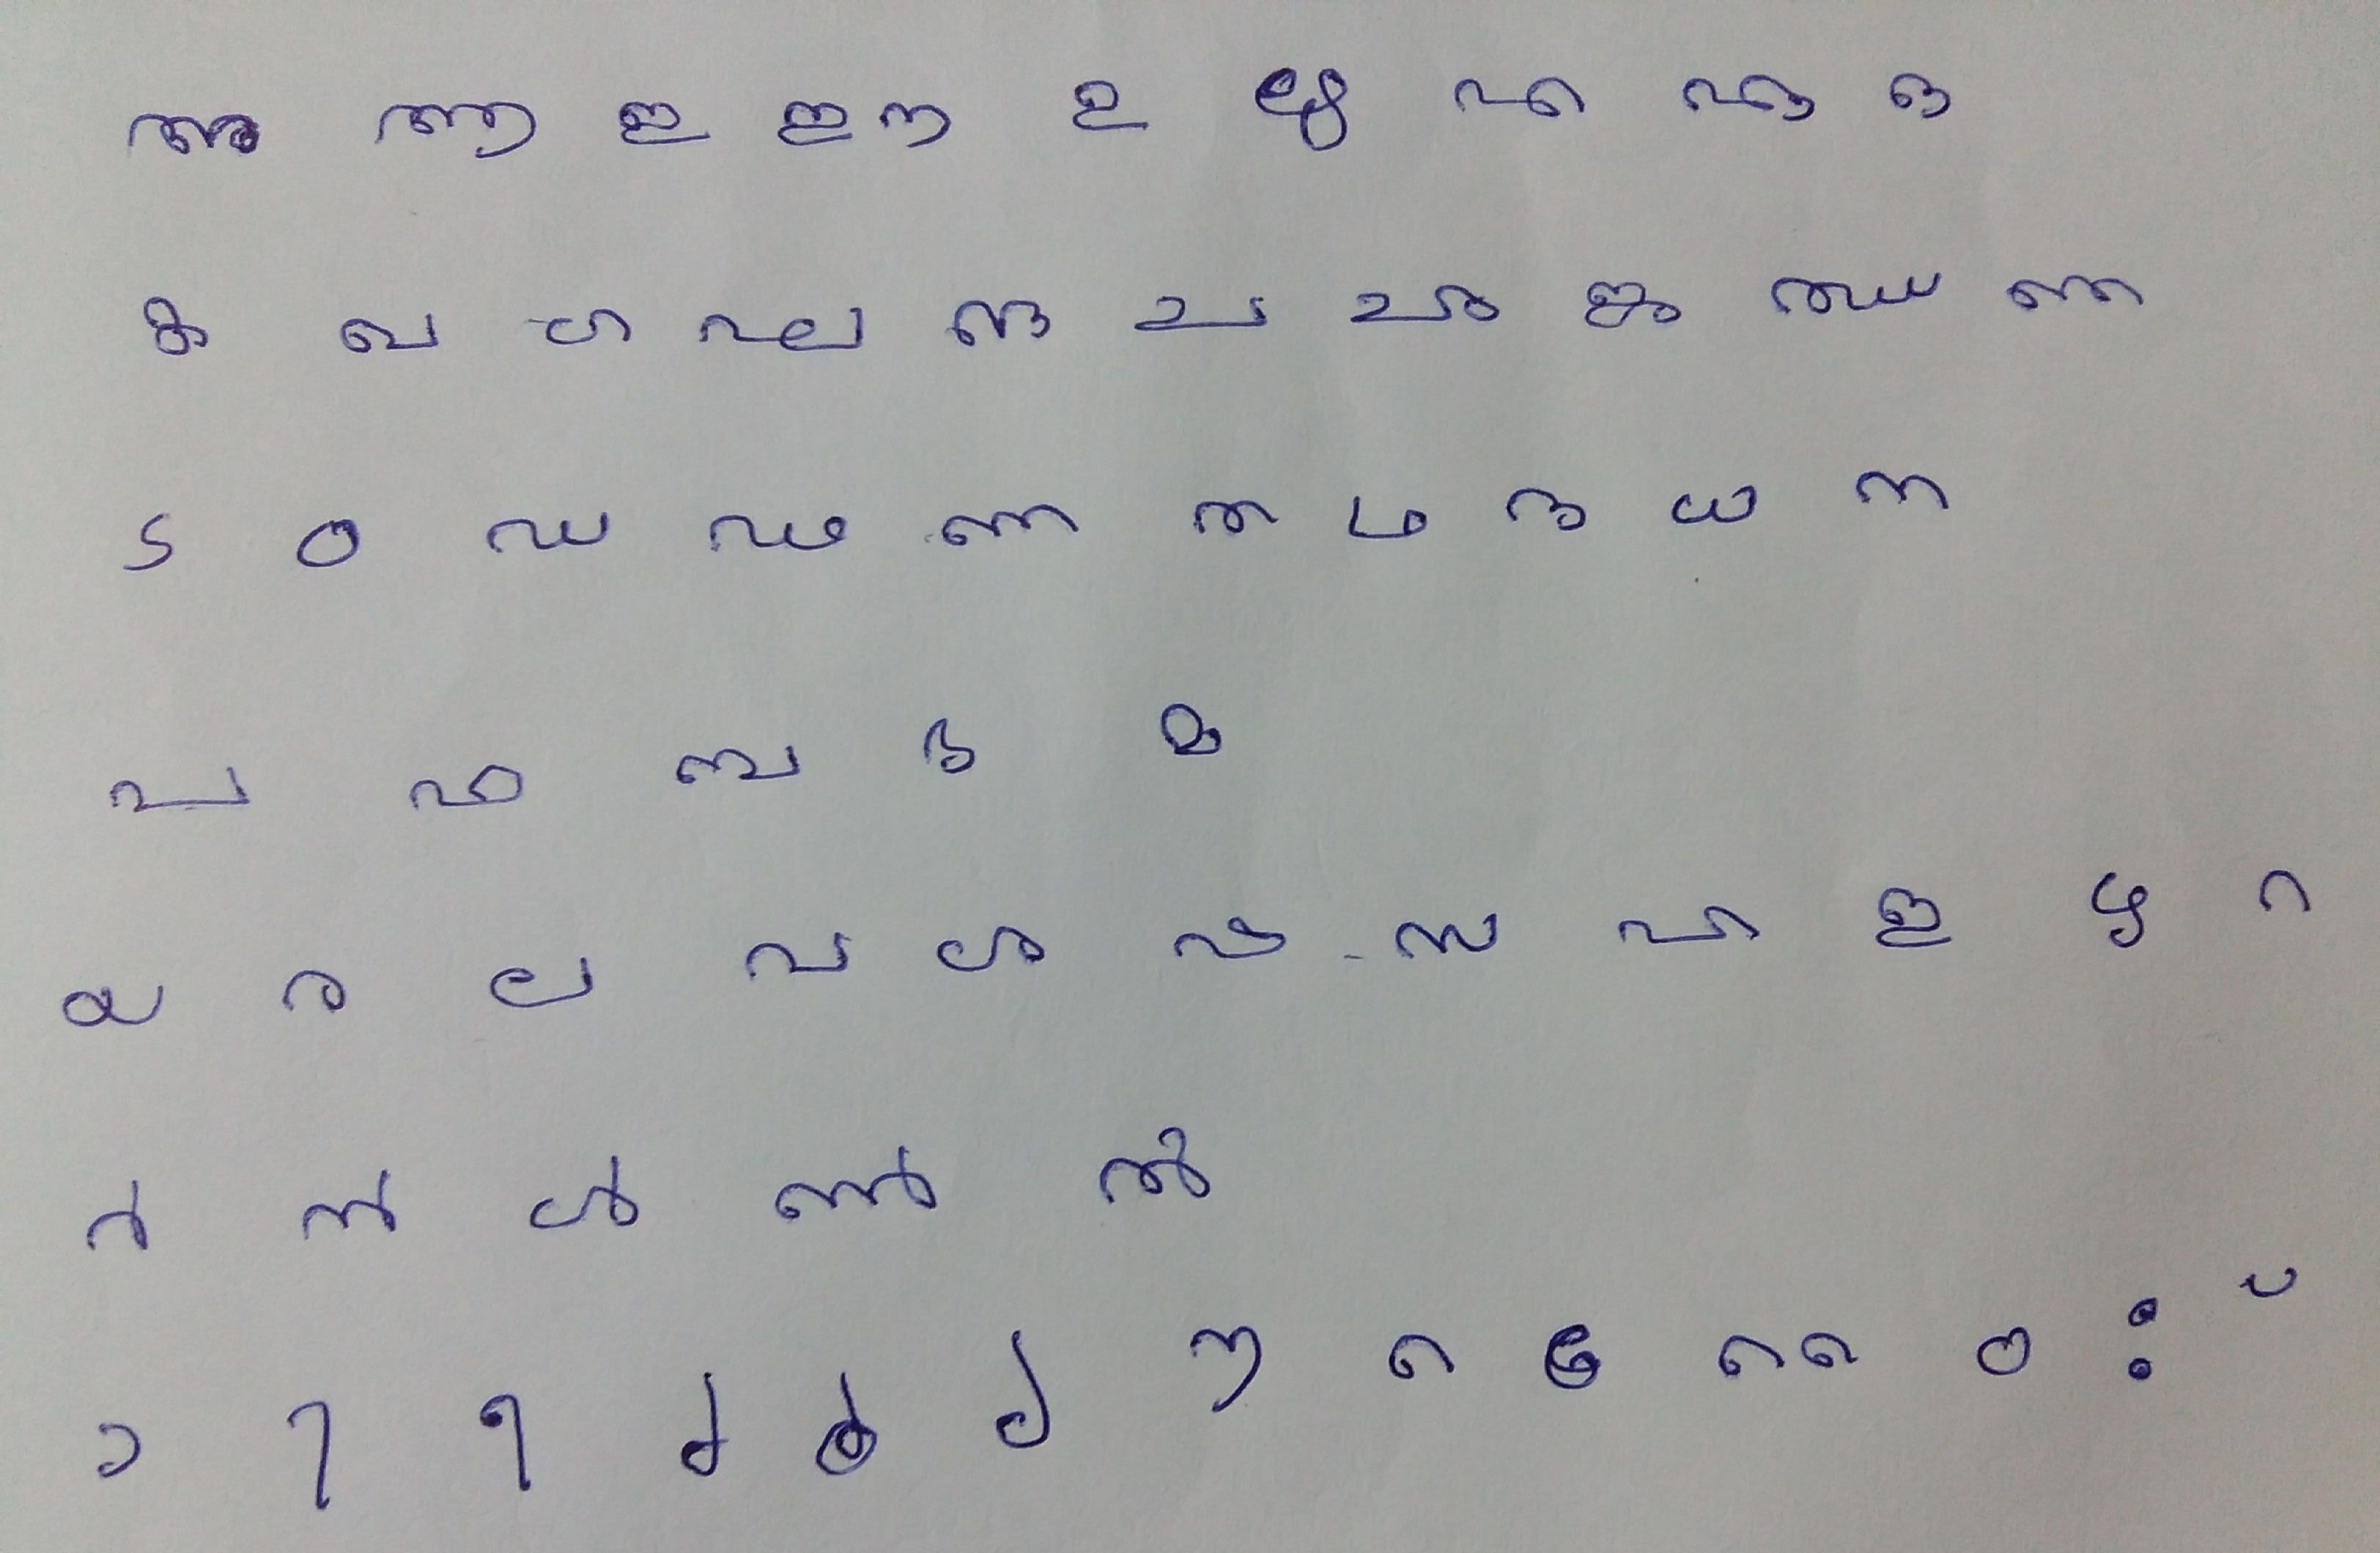 അ ആ ഇ ഈ ഉ ഋ എ ഏ ഒ
ക ഖ ഗ ഘ ങ ച ഛ ജ ഝ ഞ
ട ഠ ഡ ഢ ണ ത ഥ ദ ധ ന
പ ഫ ബ ഭ മ
യ ര ല വ ശ ഷ സ ഹ ള ഴ റ
ർ ൻ ൾ ൺ ൽ
ാ ി ീ ു ൂ ൃ ൗ െ േ ൈ ം ഃ ്